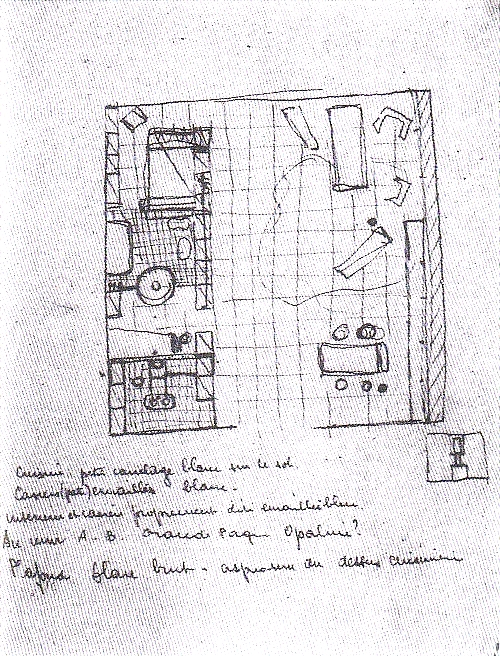 Cuisine petit carrelage blanc sur le sol.
Casiers (pet) émaillés blanc -
intérieur et casiers proprement dits émaillé bleu.
Au mur A. B. Grande Opaline?
Plafond blanc brut - aspirateur du dessus cuisinière